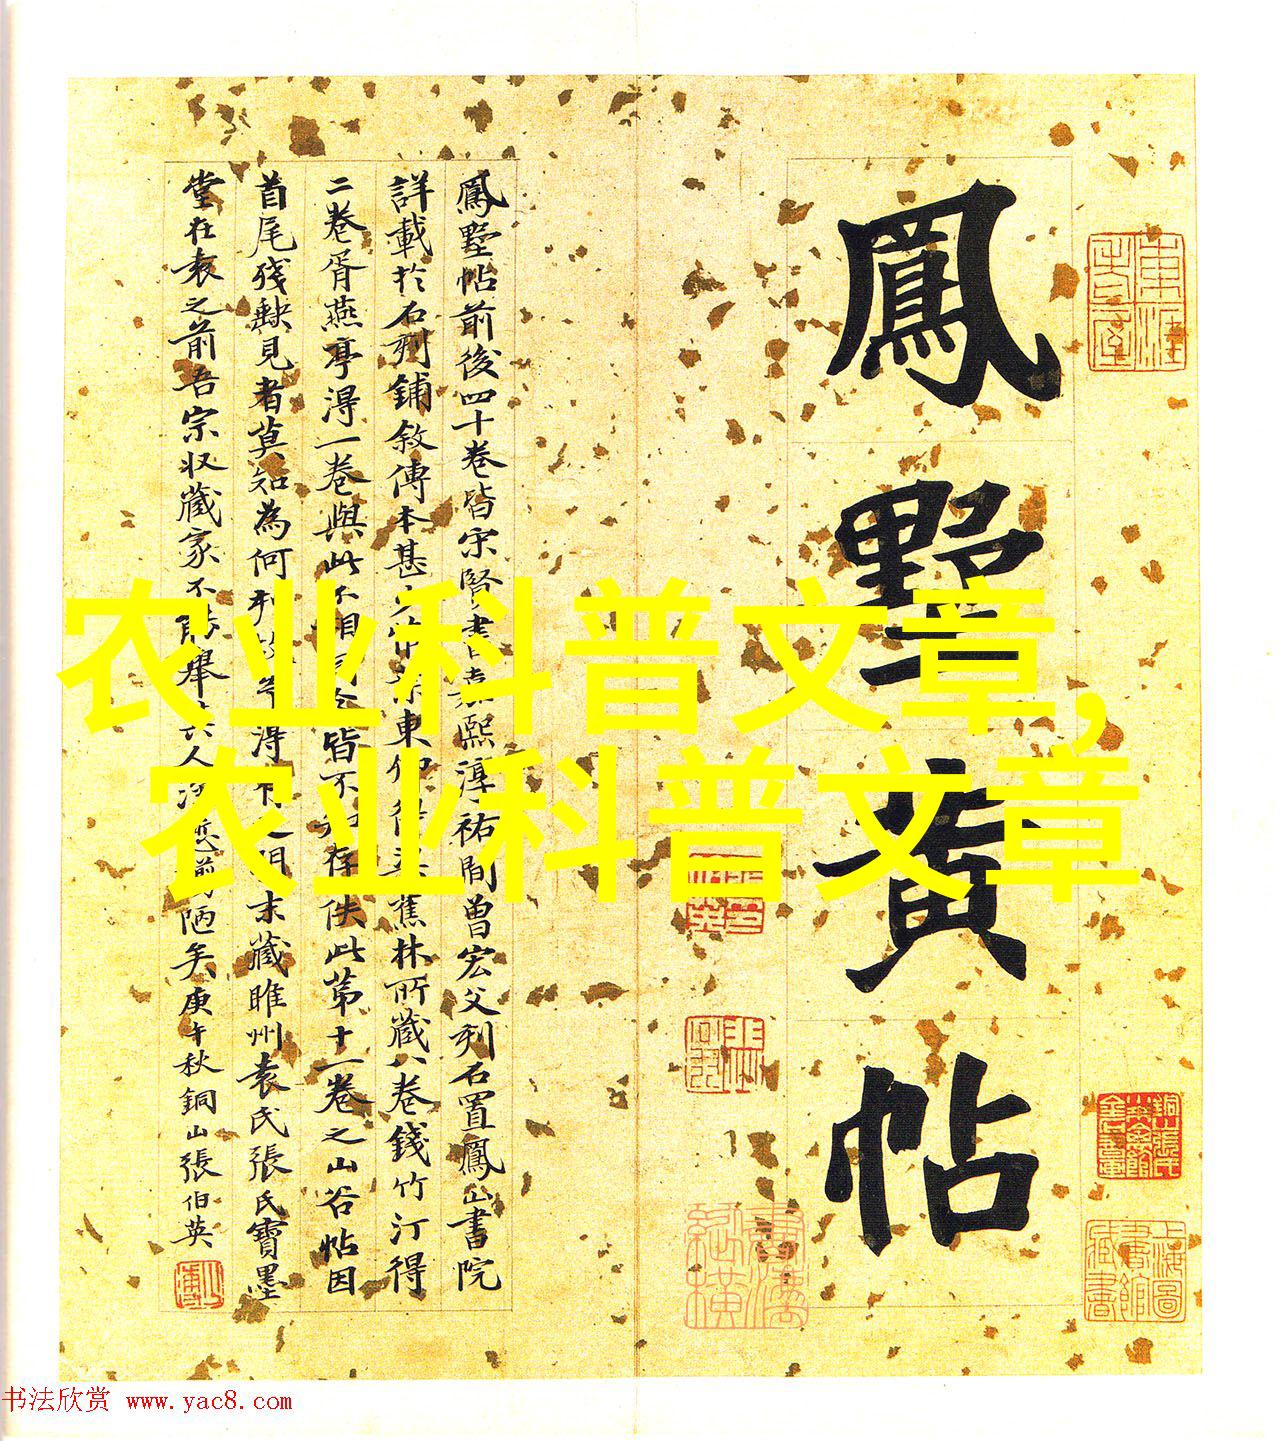 鳳墅黄帖
鳳墅帖前後四十卷皆宋賢書嘉熙淳祐間曾宏父刋石置鳳山書院
詳載於石刻鋪敘傳本甚東得蕉林所藏八卷錢竹汀得
二卷胥燕亭得一卷與此不相皆不存佚此第十一卷之山谷帖因
首尾殘缺見者莫知為何得末藏睢州袁氏張氏寶墨
堂在袁之前吾宗收藏家不舉人前陋矣庚午秋銅山張伯英
农业科普文章,
农业科普文章
上海圖書館藏書
书法欣赏 www.yac8.com